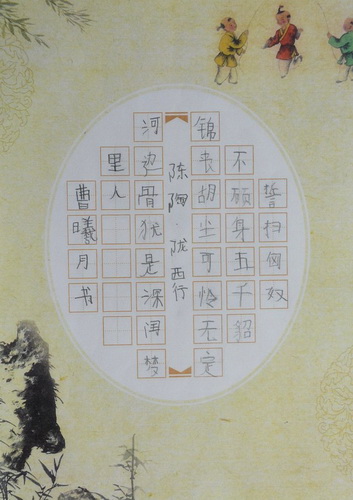 誓扫匈奴
不顾身五千貂
锦丧胡尘可怜无定
陈陶·陇西行
河边骨犹是深闺梦
里人
曹曦月书